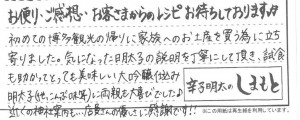 お便り・ご感想・お客さまからのレシピお待ちしております♪
初めての博多観光の帰りに家族へのお土産を買う為に立ち
寄りました。気になった明太子の説明を丁寧にして頂き、試食
も助かってとっても美味しい大吟醸仕込み
明太子(他、こんぶ味等)に両親も大喜びでした♪
近くの神社案内も…店員さんの優しさに感謝です!!
辛子明太の しまもと
※この用紙は再生紙を利用しています。